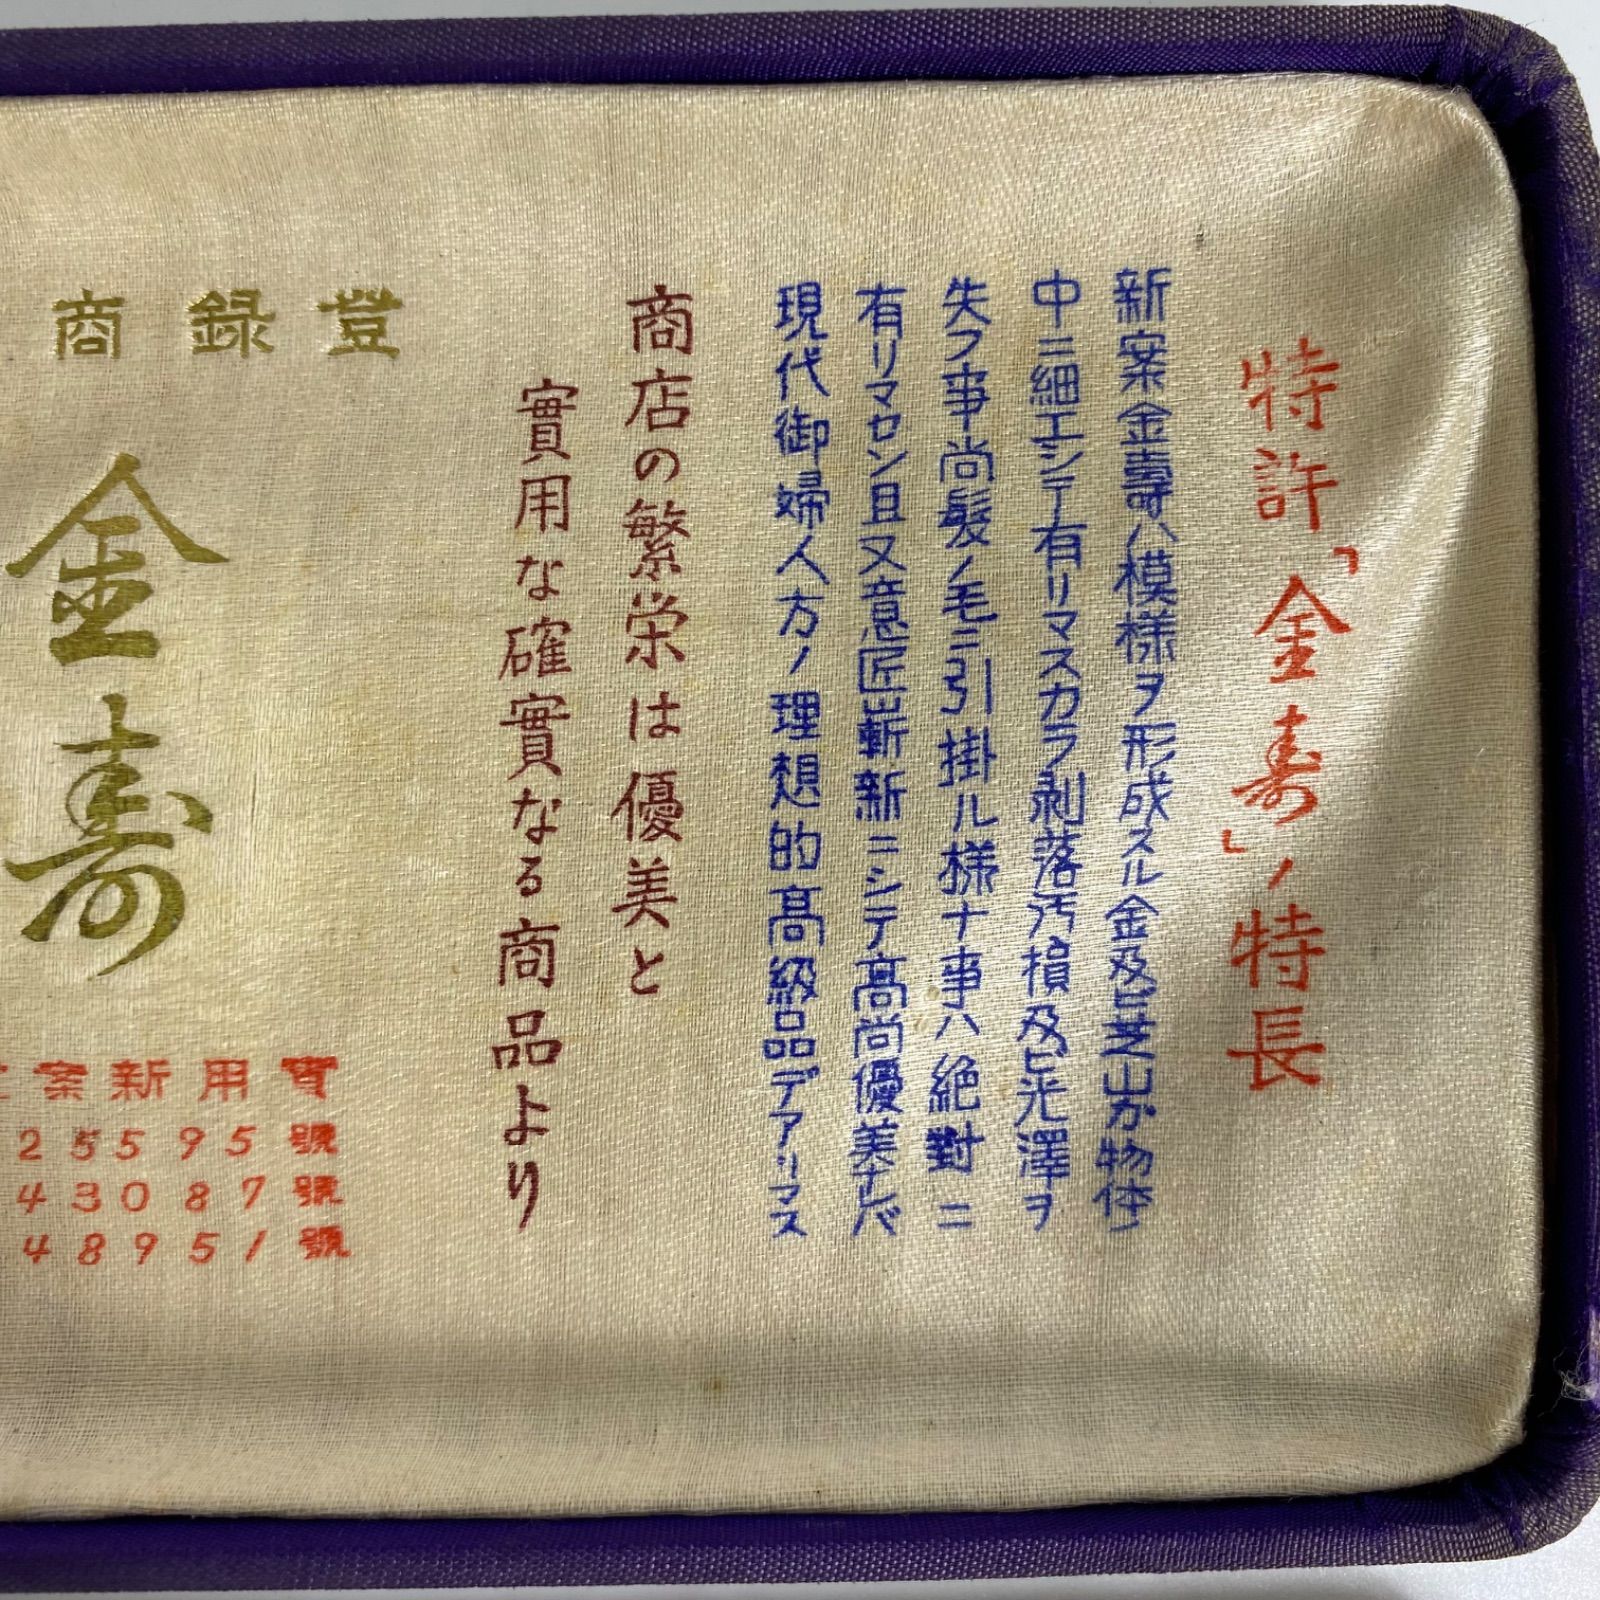 特許「金寿」ノ特長
新案金壽ハ模様ヲ形成スル金及ビ芝山ガ物体
中ニ細工シテ有リマスカラ剥落汚損及ビ光澤ヲ
失フ事尚髪ノ毛ニ引掛ル様ナ事ハ絶對ニ
有リマセン且又意匠斬新ニシテ高尚優美ナレバ
現代御婦人方ノ理想的高級品デアリマス
商店の繁栄は優美と
實用な確實なる商品より
登録商
金寿
實用新案
25595號
43087號
48951號